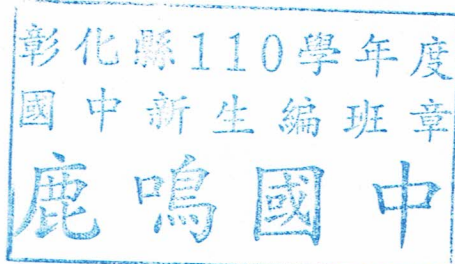 彰化縣110學年度
國中新生編班章
鹿鳴國中